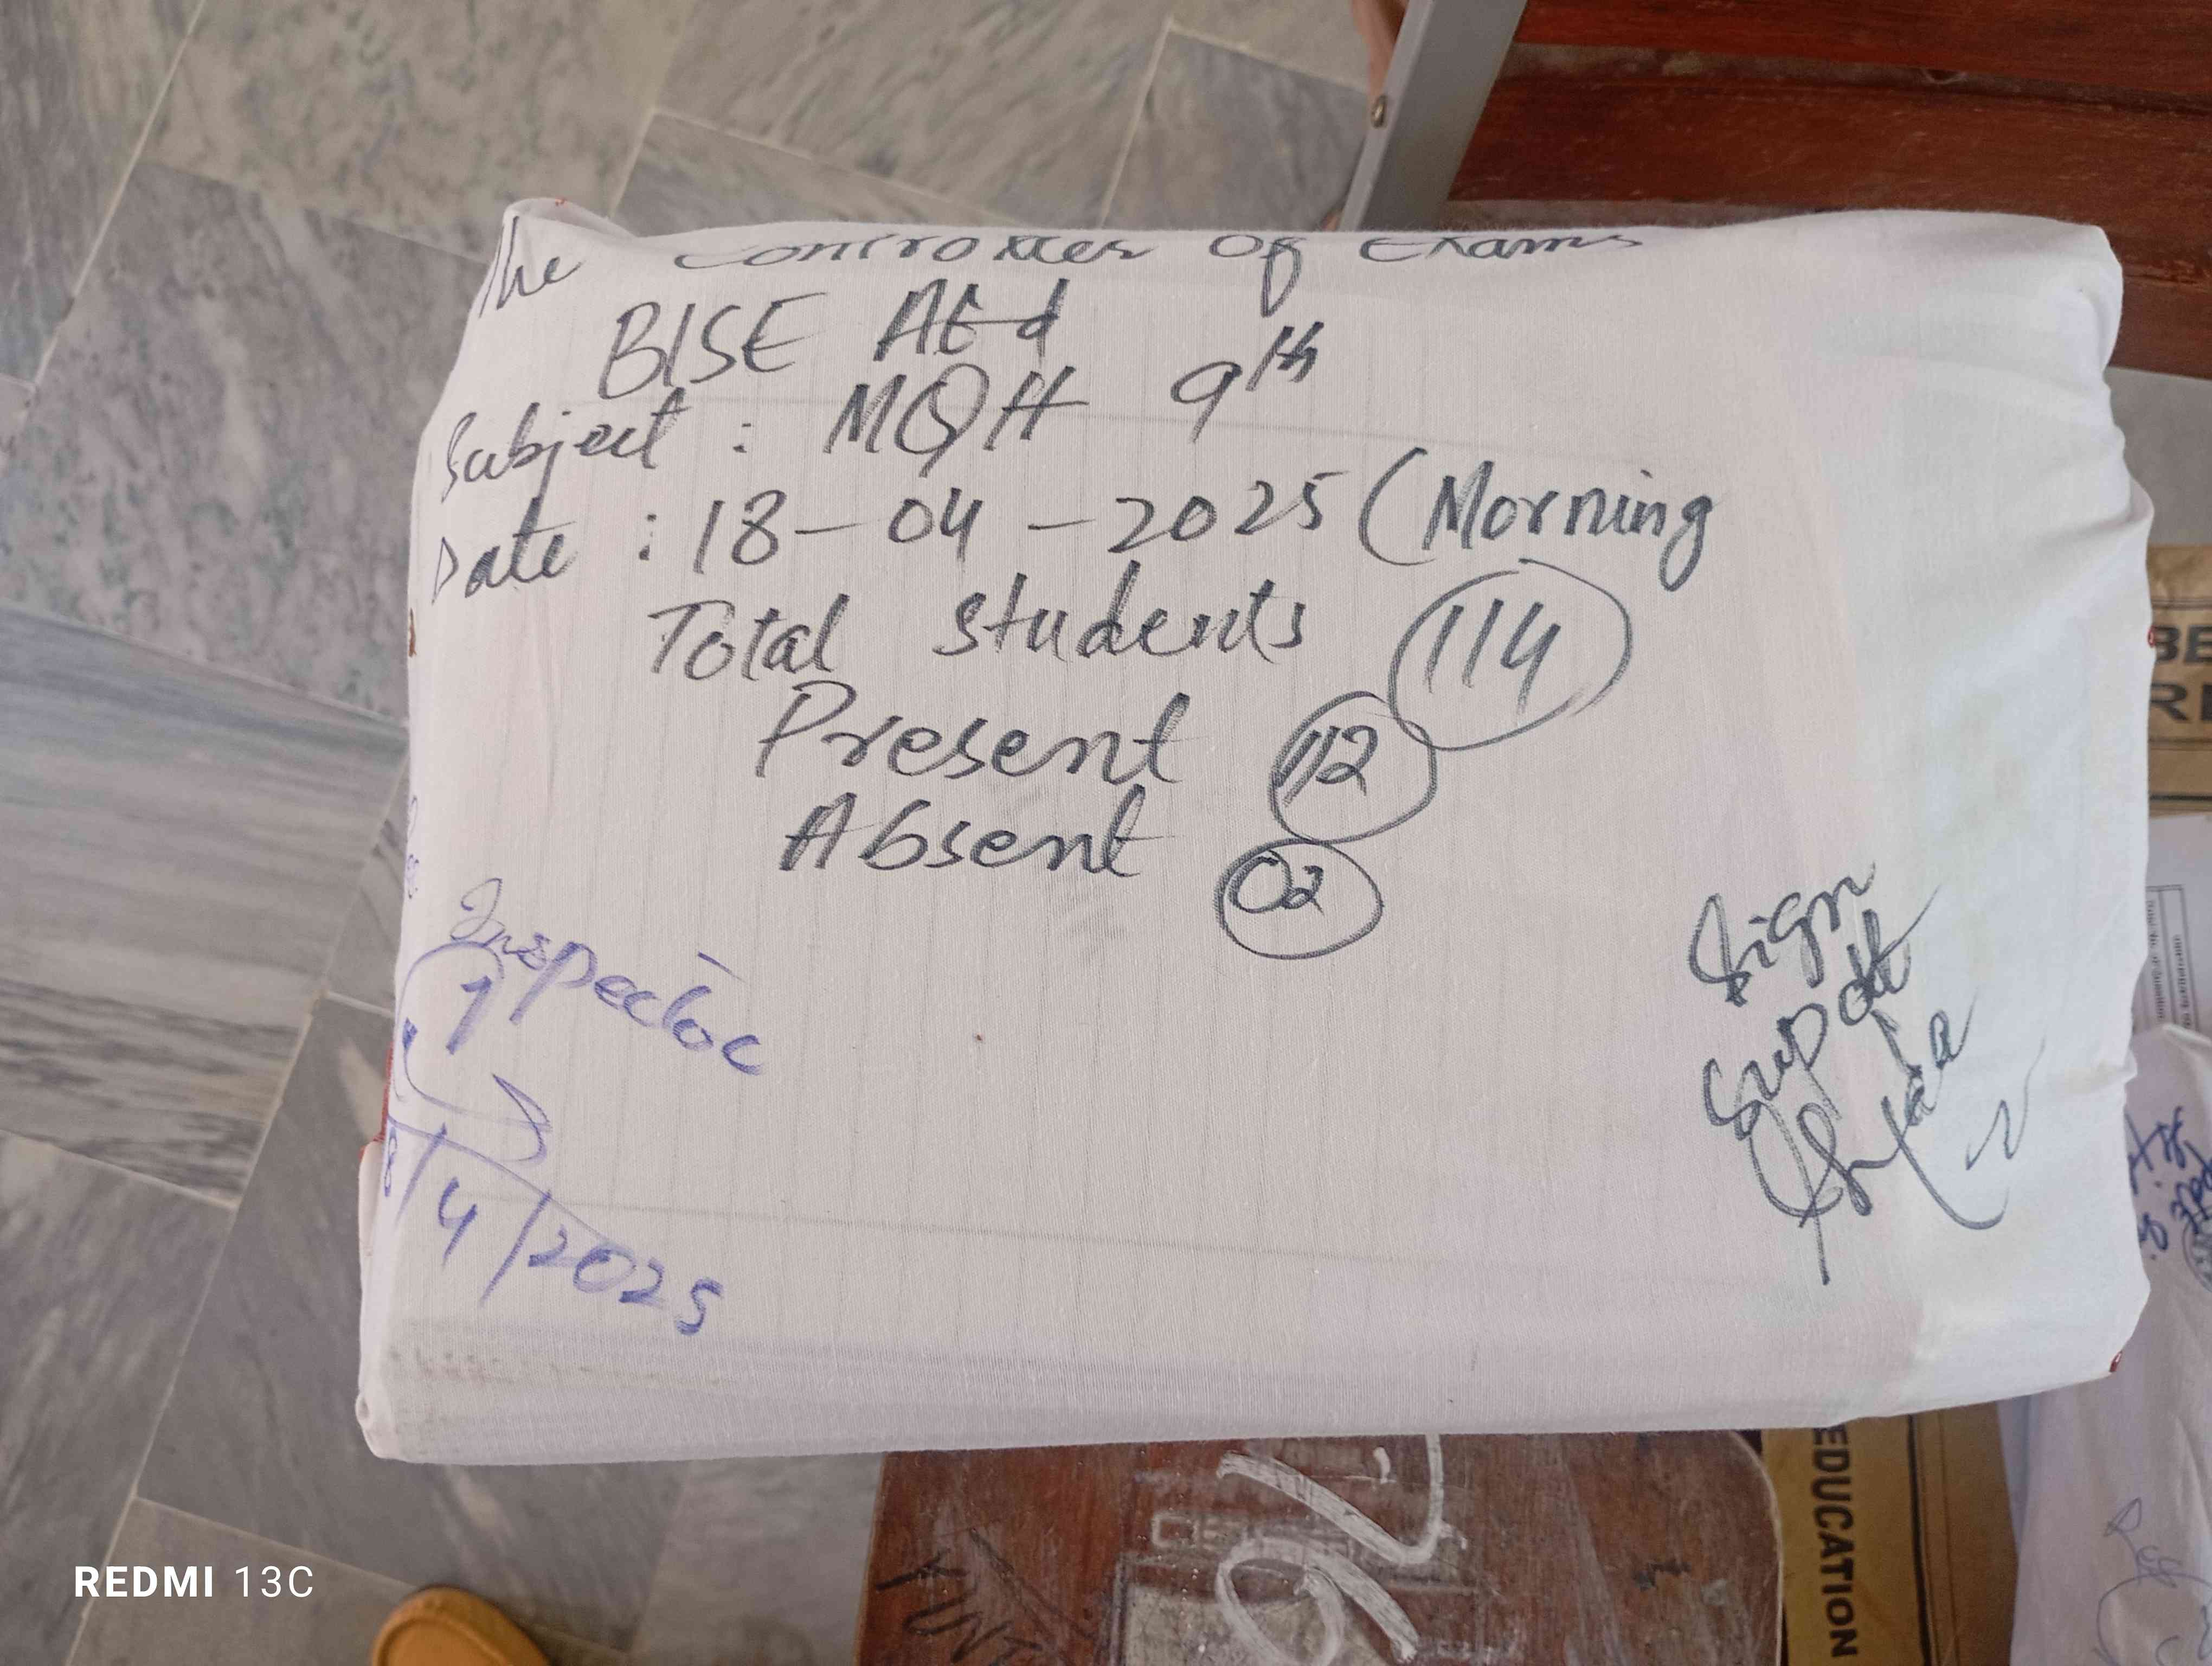 The Controller Of Exams
BISE Atd
Subject : MQH 9th
Date : 18-04-2025 (Morning
Total Students 114
Present 112
Absent 02
Inspector
8/4/2025
Sign
Supdtt
EDUCATION
BE
RE
REDMI 13C